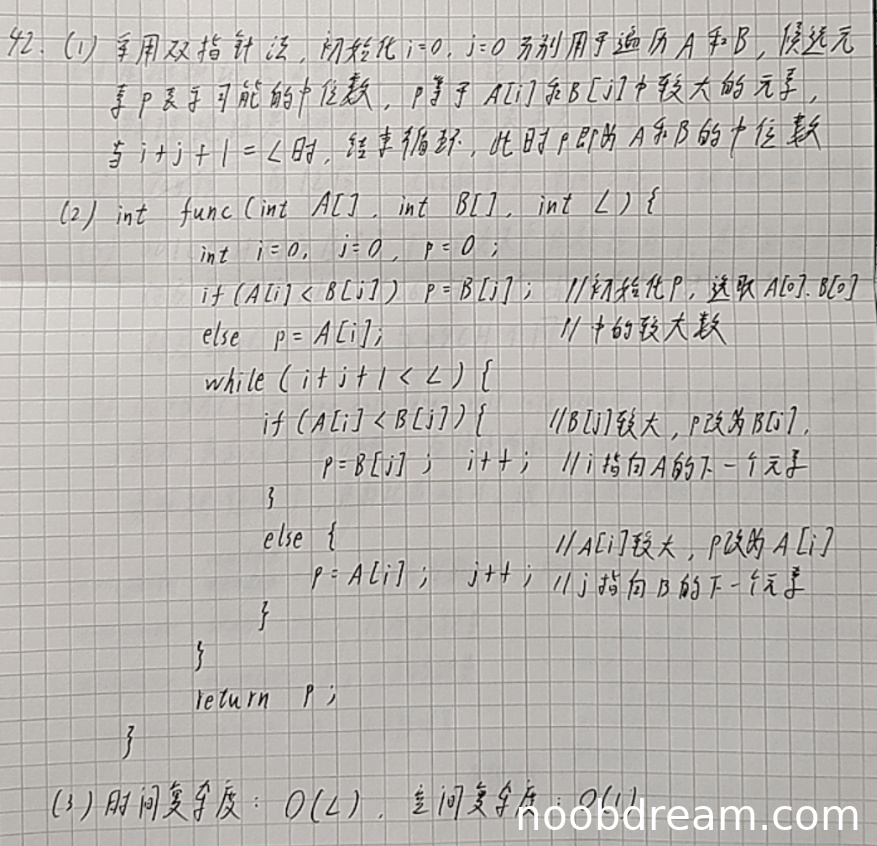 42. (1) 采用双指针法, 初始化 i=0, j=0 分别用于遍历 A 和 B, 候选元
素 P 表示可能的中位数, P等于 A[i] 和 B[j] 中较大的元素,
当 i+j+1 = L 时, 结束循环, 此时 P 即为 A 和 B 的中位数
(2) int func (int A[], int B[], int L) {
int i=0, j=0, p=0;
if (A[i] < B[j]) p=B[j]; //初始化P, 选取 A[0]、B[0]
else p=A[i]; //中的较大数
while (i+j+1 < L) {
if (A[i] < B[j]) { //B[j]较大, P改为B[j],
p=B[j]; i++; //i指向A的下一个元素
}
else { //A[i]较大, P改为A[i]
p=A[i]; j++; //j指向B的下一个元素
}
}
return p;
}
(3) 时间复杂度: O(L), 空间复杂度: O(1)
noobdream.com